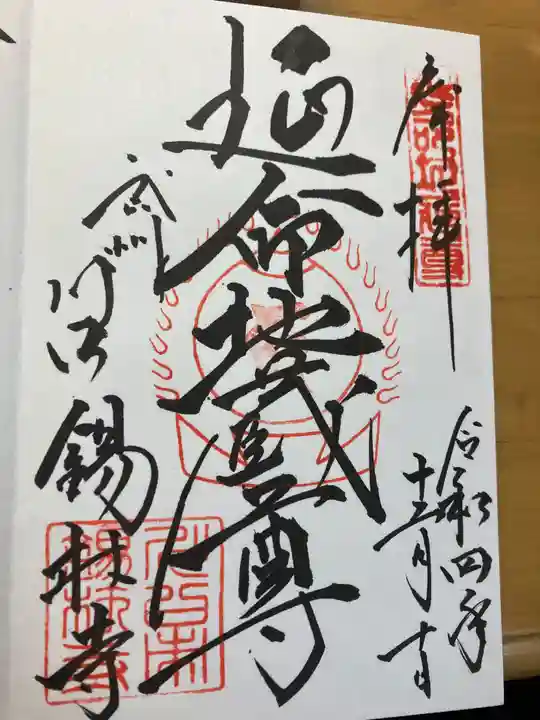 奉拝
令和四年
十二月十一日
延命地蔵尊
武州川口
錫杖寺